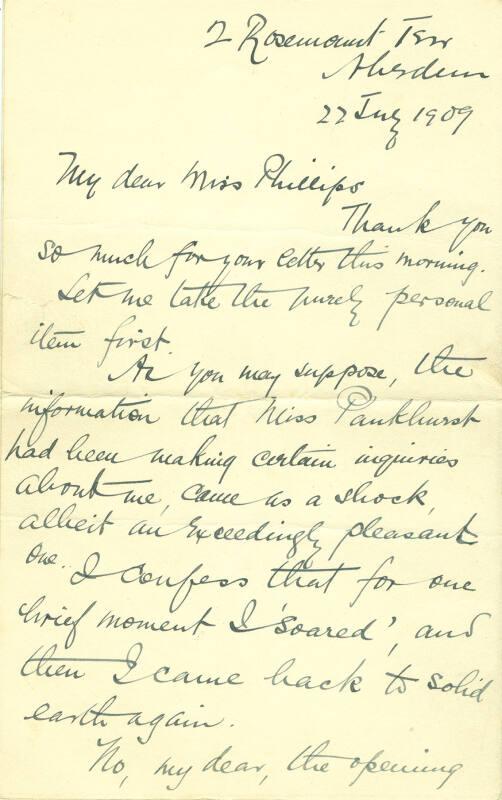 2 Rosemount Terr
Aberdeen
27 July 1909
My dear Miss Phillips
Thank you
so much for your letter this morning.
Let me take the purely personal
item first.
As you may suppose, the
information that Miss Pankhurst
had been making certain inquiries
about me, came as a shock,
albeit an exceedingly pleasant
one. I confess that for one
brief moment I 'soared', and
then I came back to solid
earth again.
No, my dear, the opening